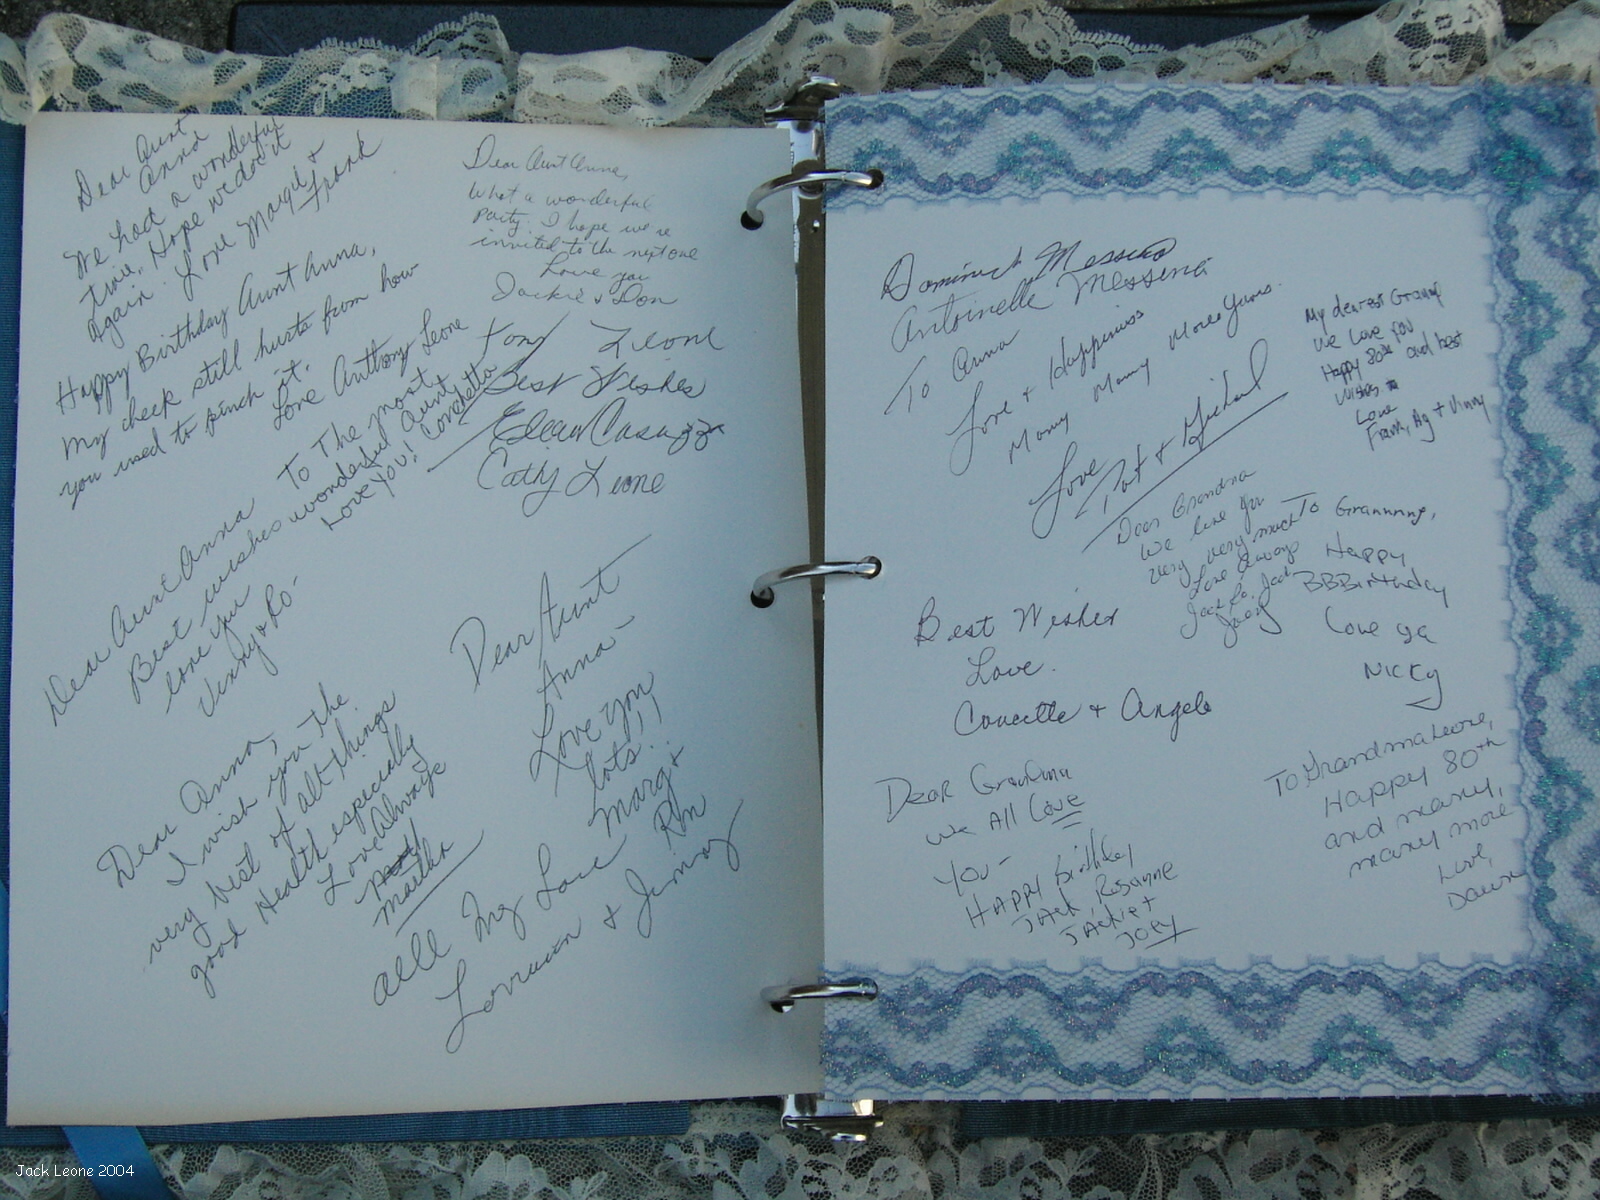 Dear Aunt
Anna
We had a wonderful
time. Hope we do it
again. Love Margie &
Frank
Dear Aunt Anna,
What a wonderful
party. I hope we're
invited to the next one
Love you
Jackie & Don
Happy Birthday Aunt Anna,
My cheek still hurts from how
you used to pinch it.
Love Anthony Leone
Tony Leone
Best Wishes
Cathy Leone
To The most
wonderful Aunt
Love You! Conchetta
Dear Aunt Anna
Best wishes
love you
Vinny & Ro-
Dear Aunt
Anna-
Love you
lots!!
Marg &
Ron
Dear Anna,
I wish you the
very best of all things
good Health especially
Love Always
Martha
All My Love
Lorraine & Jimmy
Dominick Messina
Antoinelle Messina
To Anna
Love & Happiness
Many Many More Years.
Love
Pat & Michael
My dearest Granny
We Love You
Happy 80th and best
Wishes
Love
Frank, Ag + Vinny
Dear Grandma
We love you
very very much
Love Always
Jack Ro. Jack
Joey
To Grannnny,
Happy
BBBirthday
Love ya
Nicky
Best Wishes
Love.
Concette & Angelo
Dear Grandma
We All Love
You-
Happy birthday
Jack, Rosanne
Jackie +
Joey
To Grandma Leone,
Happy 80th
and many,
many more
Love,
Dawn
Jack Leone 2004